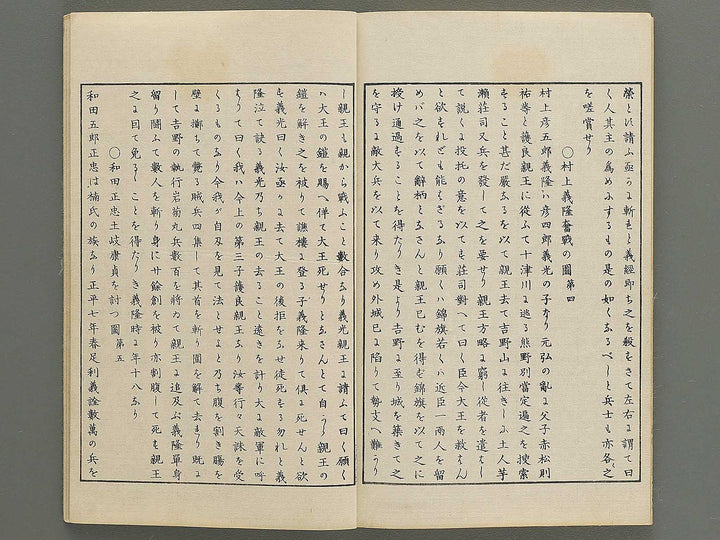 榮とに請ふ亟かに斬れと義經即ち之を殺もさて左右に謂て曰
く人其主の為めにするもの是の如くなるべしと兵士も亦各之
を嗟賞せり
○村上義隆奮戰の圖第四
村上彦五郎義隆ハ彦四郎義光の子なり元弘の亂に父子赤松則
祐等と護良親王に從ふて十津川に逃る熊野別當定遍之を搜索
すること甚だ嚴なるを以て親王去て吉野山に往きしに土人芋
瀬莊司又兵を發して之を要せり親王方略に窮し從者を遣はし
て説くに投托の意を以てすも莊司對へて曰く臣今大王を救はん
と欲すれども能はざるなり願くハ錦旗若くハ近臣一兩人を留
めバ之を以て辭柄となさんと親王已むを得ず錦旗を以て之に
授け通過することを得たり是より吉野に至り城を築きて之
を守るに敵大兵を以て來り攻め外城已に陷りて勢支へ難かり
し親王も親から戰ふこと數合なり義光親王に請ふて曰く願く
ハ大王の鎧を賜へ佯て大王死せりとなさんとて自から親王の
鎧を解き之を被りて譙樓に登る子義隆來りて俱に死せんと欲
す義光曰く汝亟かに去て大王の後拒をなせ徒死する勿れと義
隆泣て訣る義光乃ち親王の去ること遠きを計り大に敵軍に呼
はりて曰く我ハ今上の第三子護良親王なり汝等行々天誅を受
くるものなり今我が自刃を見て法とせよと乃ち腹を割き腸を
壁に擲ちて斃る賊兵四集して其首を斬り圍を解て去まり既に
して吉野の執行岩菊丸兵數百を將ゐて親王に追及ぶ義隆單身
留り鬪ふて數人を斬り身に廿餘創を被り亦割腹して死も親王
之に因て免るゝことを得たりき義隆時に年十八なり
○和田正忠土岐康貞を討つ圖第五
和田五郎正忠は楠氏の族なり正平七年春足利義詮數萬の兵を